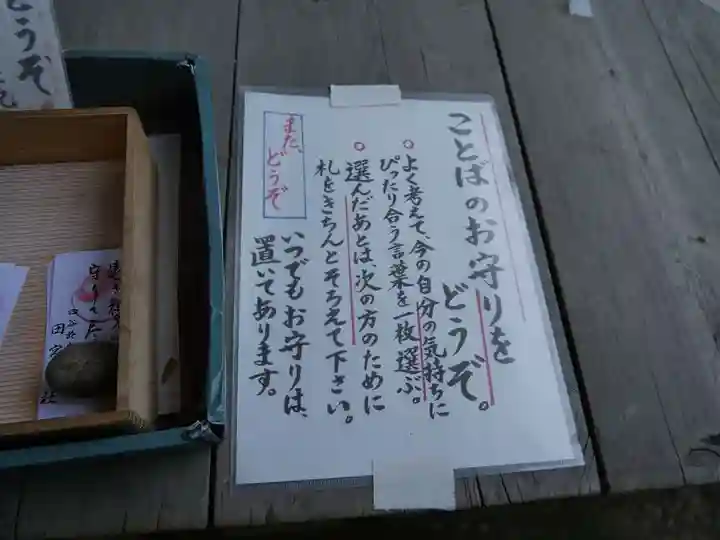 ことばのお守りを
どうぞ。
○よく考えて、今の自分の気持ちに
ぴったり合う言葉を一枚選ぶ。
○選んだあとは次の方のために
札をきちんとそろえて下さい。
また、どうぞ
いつでもお守りは、
置いてあります。
どうぞ
守り
田
社